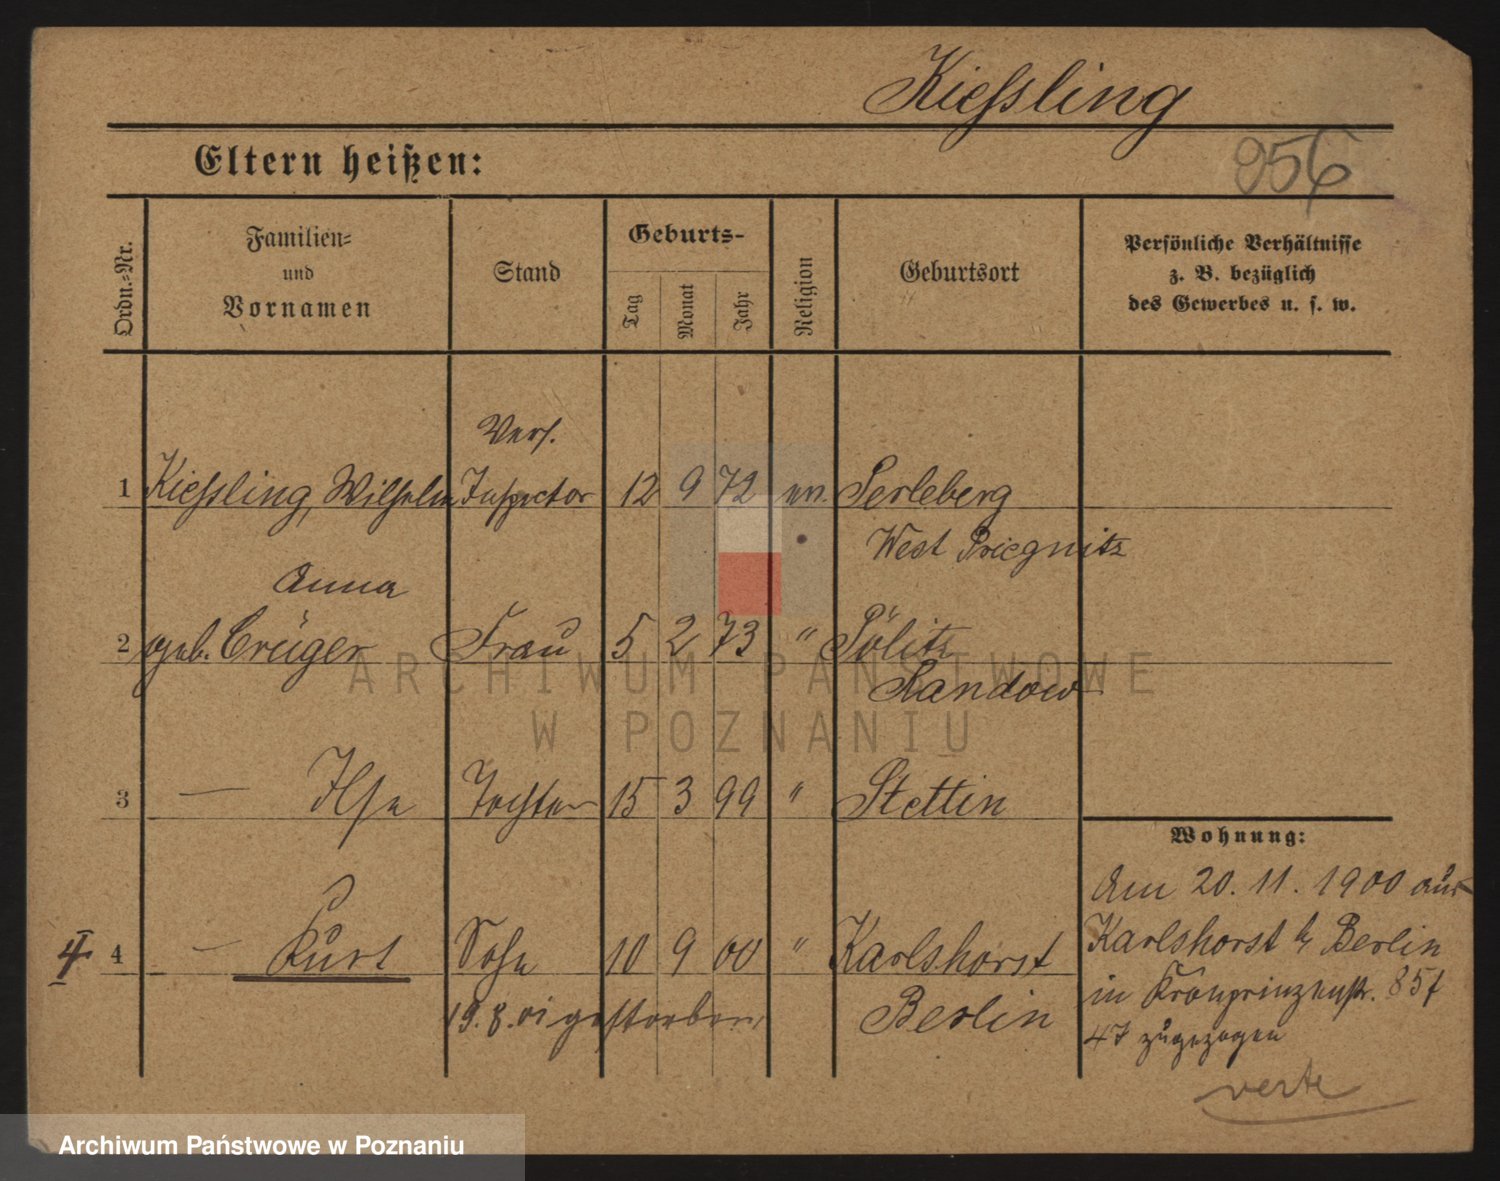 Kießling
Eltern heißen:
956
Ordn.-Nr.
Familien-
und
Vornamen
Stand
Geburts-
Tag
Monat
Jahr
Religion
Geburtsort
Persönliche Verhältnisse
z. B. bezüglich
des Gewerbes u. s. w.
Vers.
1 Kießling, Wilhelm Inspector 12 9 72 ev. Perleberg
West Priegnitz
Anna
2 geb. Crüger Frau 5 2 73 " Pölitz
Randow
3 — Ilse Tochter 15 3 99 " Stettin
Wohnung:
Am 20. 11. 1900 aus
Karlshorst b/ Berlin
in Kronprinzenstr. 85 f
47 zugezogen
verte
4 — Kurt Sohn 10 9 00 " Karlshorst
19. 8. 01 gestorben Berlin
ARCHIWUM PAŃSTWOWE
W POZNANIU
Archiwum Państwowe w Poznaniu